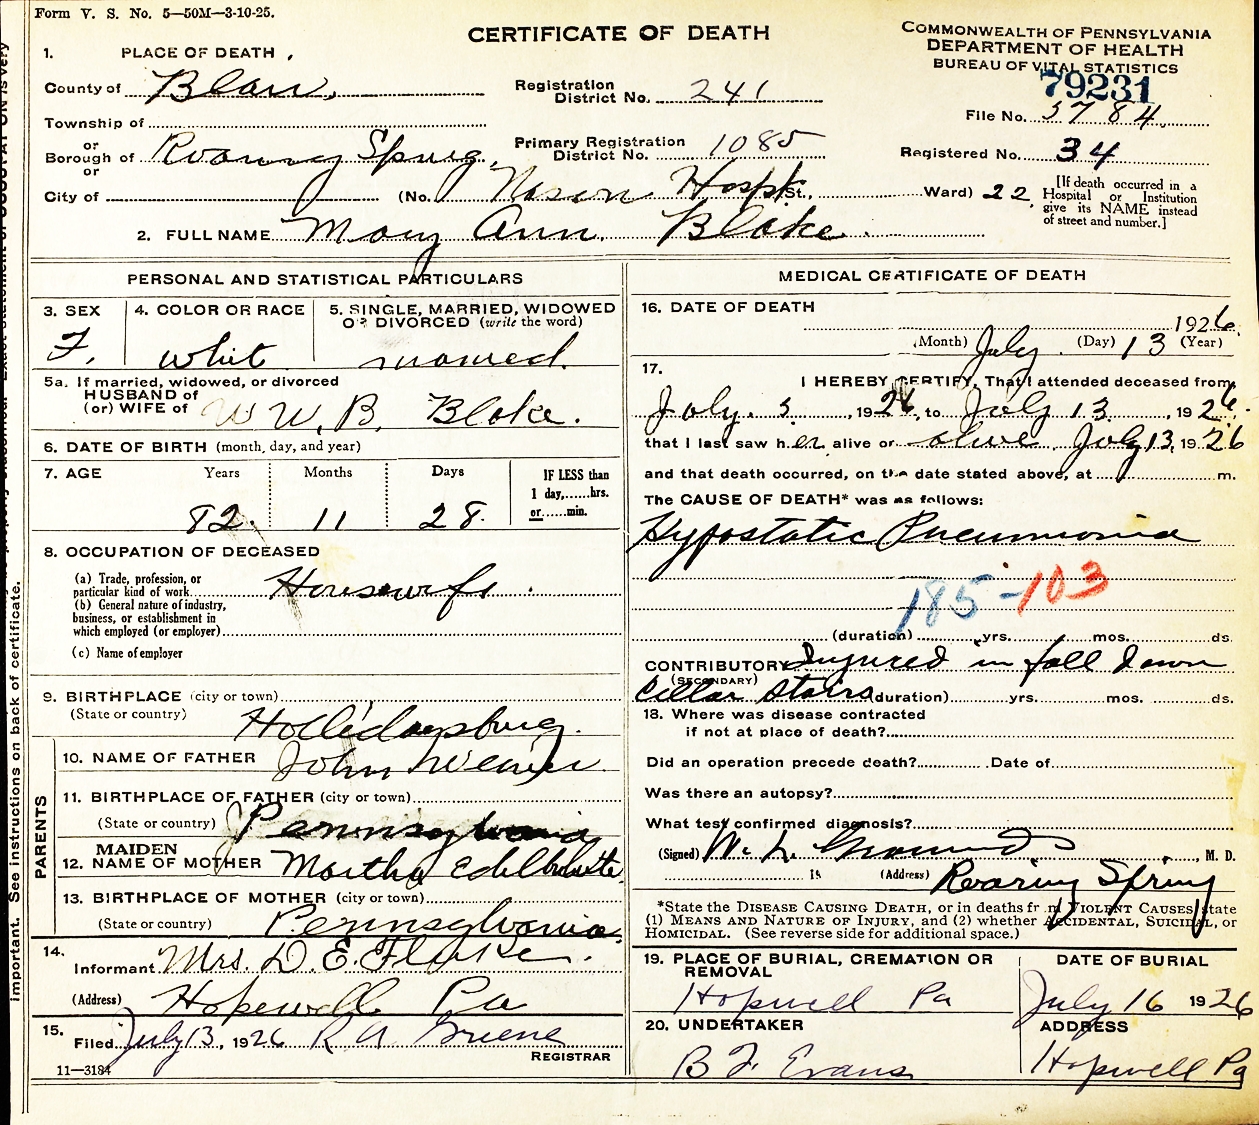 Form V. S. No. 5—50M—3-10-25.
CERTIFICATE OF DEATH
COMMONWEALTH OF PENNSYLVANIA
DEPARTMENT OF HEALTH
BUREAU OF VITAL STATISTICS
79231
1. PLACE OF DEATH
County of Blair
Registration District No. 241
File No. 3784
Township of
or
Borough of Roaring Spring
Primary Registration District No. 1085
Registered No. 34
or
City of (No. Nason Hosp St., Ward) 22
[If death occurred in a Hospital or Institution give its NAME instead of street and number.]
2. FULL NAME Mary Ann Blake
PERSONAL AND STATISTICAL PARTICULARS
3. SEX F.
4. COLOR OR RACE whit
5. SINGLE, MARRIED, WIDOWED OR DIVORCED (write the word) married.
5a. If married, widowed, or divorced
HUSBAND of
(or) WIFE of W. B. Blake.
6. DATE OF BIRTH (month, day, and year)
7. AGE Years Months Days
82. 11 28.
IF LESS than
1 day,......hrs.
or......min.
8. OCCUPATION OF DECEASED
(a) Trade, profession, or particular kind of work Housewife
(b) General nature of industry, business, or establishment in which employed (or employer)
(c) Name of employer
9. BIRTHPLACE (city or town)
(State or country) Hollidaysburg.
PARENTS
10. NAME OF FATHER John Weaver
11. BIRTHPLACE OF FATHER (city or town)
(State or country) Pennsylvania
12. MAIDEN NAME OF MOTHER Martha
13. BIRTHPLACE OF MOTHER (city or town)
(State or country) Pennsylvania
14.
Informant Mrs. D. E.
(Address) Hopewell Pa
15.
Filed July 13, 1926 R A Greene
REGISTRAR
11—3184
MEDICAL CERTIFICATE OF DEATH
16. DATE OF DEATH
1926
(Month) July (Day) 13 (Year)
17. I HEREBY CERTIFY, That I attended deceased from
July 3, 1926, to July 13, 1926.
that I last saw her alive on alive July 13, 1926
and that death occurred, on the date stated above, at m.
The CAUSE OF DEATH* was as follows:
Hypostatic Pneumonia
185-103
(duration) yrs. mos. ds.
CONTRIBUTORY Injured in fall down
(SECONDARY)
Cellar Stairs (duration) yrs. mos. ds.
18. Where was disease contracted
if not at place of death?
Did an operation precede death? Date of
Was there an autopsy?
What test confirmed diagnosis?
(Signed) W. L. , M. D.
(Address) Roaring Spring
*State the DISEASE CAUSING DEATH, or in deaths from VIOLENT CAUSES, state
(1) MEANS AND NATURE OF INJURY, and (2) whether ACCIDENTAL, SUICIDAL, or
HOMICIDAL. (See reverse side for additional space.)
19. PLACE OF BURIAL, CREMATION OR REMOVAL
Hopwell Pa
DATE OF BURIAL
July 16 1926
20. UNDERTAKER
B F Evans
ADDRESS
Hopwell Pa
important. See instructions on back of certificate.